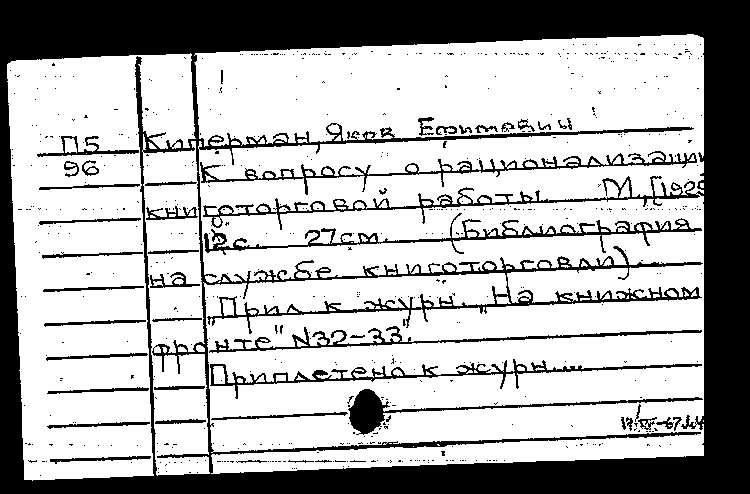 П5 Киперман, Яков Ефимович
96 К вопросу о рационализации
книготорговой работы. М., [192
12с. 27см. (Библиография
на службе книготорговли)....
"Прил к журн. "На книжном
фронте" N32-33".
Приплетено к журн....